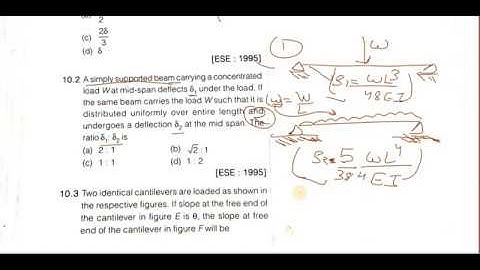 (a) δ/2
(c) 2δ/3
(d) δ
[ESE : 1995]
10.2 A simply supported beam carrying a concentrated
load W at mid-span deflects δ₁ under the load. If
the same beam carries the load W such that it is
distributed uniformly over entire length and
undergoes a deflection δ₂ at the mid span. The
ratio δ₁ : δ₂ is
(a) 2 : 1 (b) √2 : 1
(c) 1 : 1 (d) 1 : 2
[ESE : 1995]
10.3 Two identical cantilevers are loaded as shown in
the respective figures. If slope at the free end
of the cantilever in figure E is θ, the slope at free
end of the cantilever in figure F will be
1
W
(δ₁ = WL³/48EI)
ω = W/L
(δ₂ = 5/384 ωL⁴/EI)